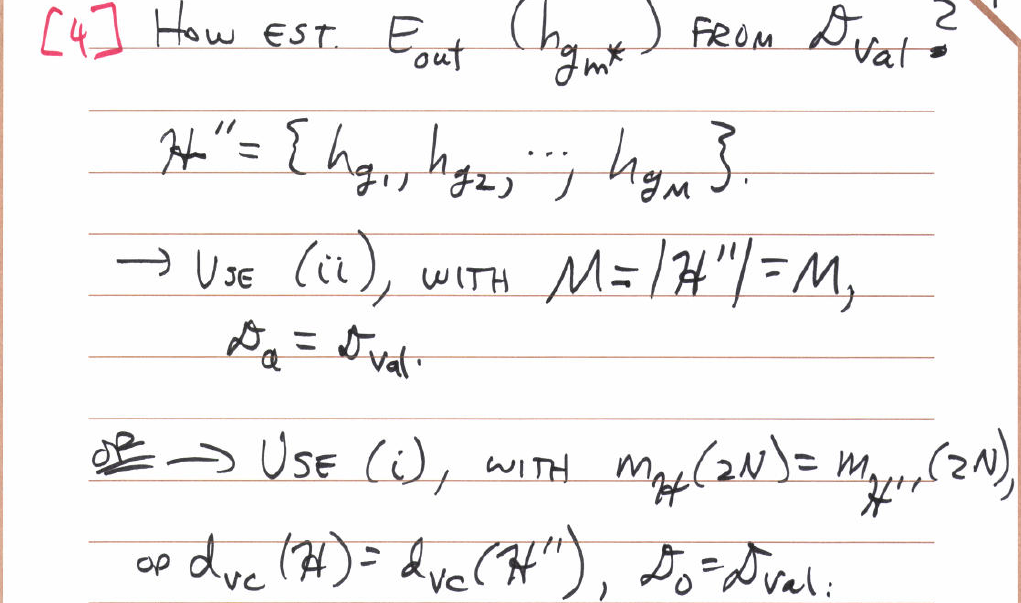 [4] How EST. E_out (h_gm*) FROM D_val?
H'' = {h_g1, h_g2, ..., h_gM}.
→ USE (ii), WITH M = |H''| = M,
D_a = D_val.
OR → USE (i), WITH m_H(2N) = m_H''(2N),
OR d_VC(H) = d_VC(H''), D_0 = D_val.